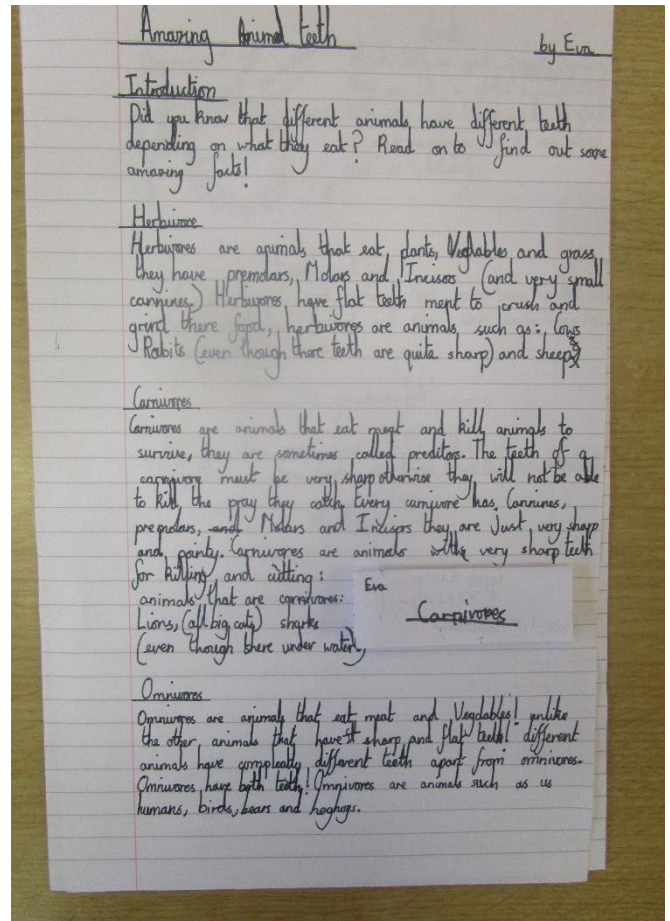 Amazing Animal teeth
by Eva
Introduction
Did you know that different animals have different teeth
depending on what they eat? Read on to find out some
amazing facts!
Herbivore
Herbivores are animals that eat plants, Vegtables and grass
they have premolars, Molars and Incisors (and very small
cannines.) Herbivores have flat teeth ment to crush and
grind there food, herbivores are animals such as: Cows
Rabits (even though there teeth are quite sharp) and sheep
Carnivores
Carnivores are animals that eat meat and kill animals to
survive, they are sometimes called preditors. The teeth of a
carnivore must be very sharp otherwise they will not be able
to kill the pray they catch. Every carnivore has Cannines,
premolars, and Molars and Incisors they are just very sharp
and pointy. Carnivores are animals with very sharp teeth
for killing and cutting:
animals that are carnivores:
Lions, (all big cats) sharks
(even though there under water),
Eva
Carnivores
Omnivores
Omnivores are animals that eat meat and Vegtables! unlike
the other animals that have sharp and flat teeth! different
animals have compleatly different teeth apart from omnivores.
Omnivores have both teeth! Omnivores are animals such as us
humans, birds, bears and heghogs.